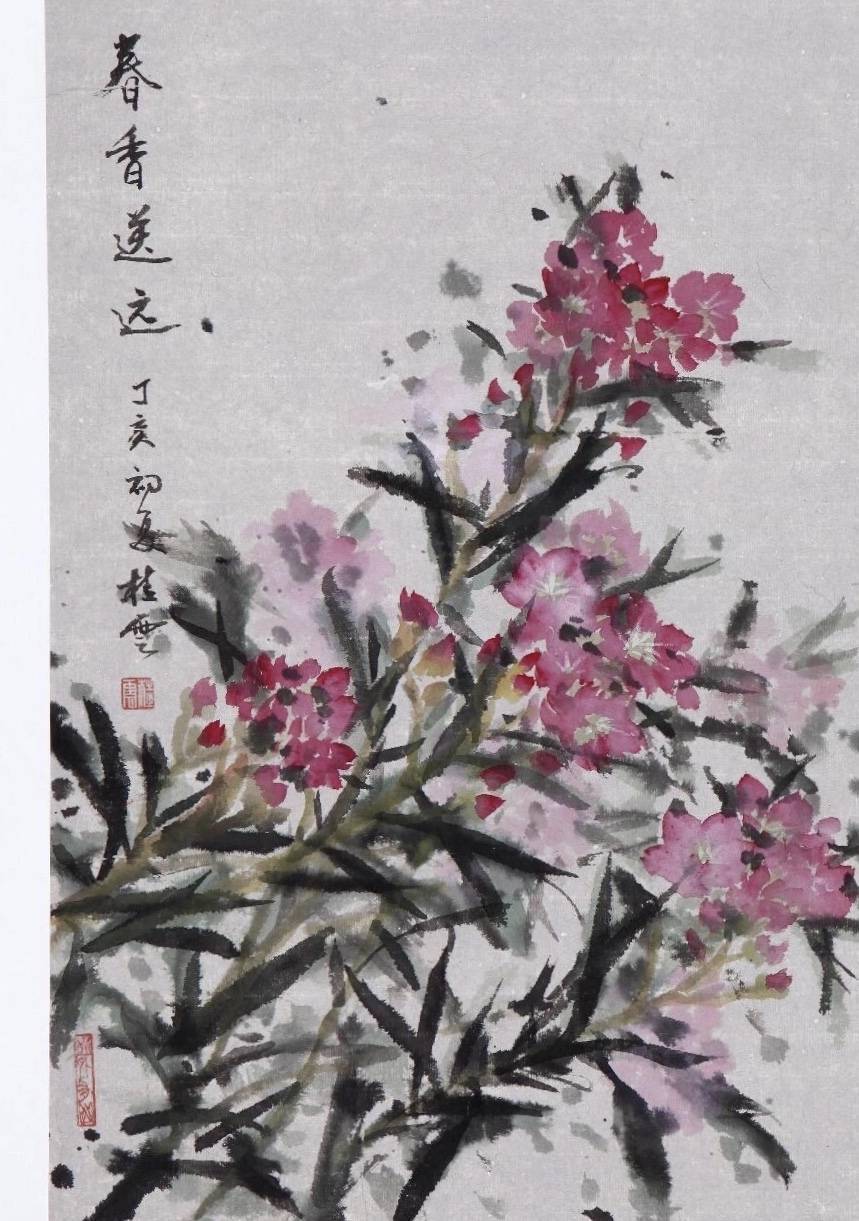 春香送远
丁亥初夏桂雲